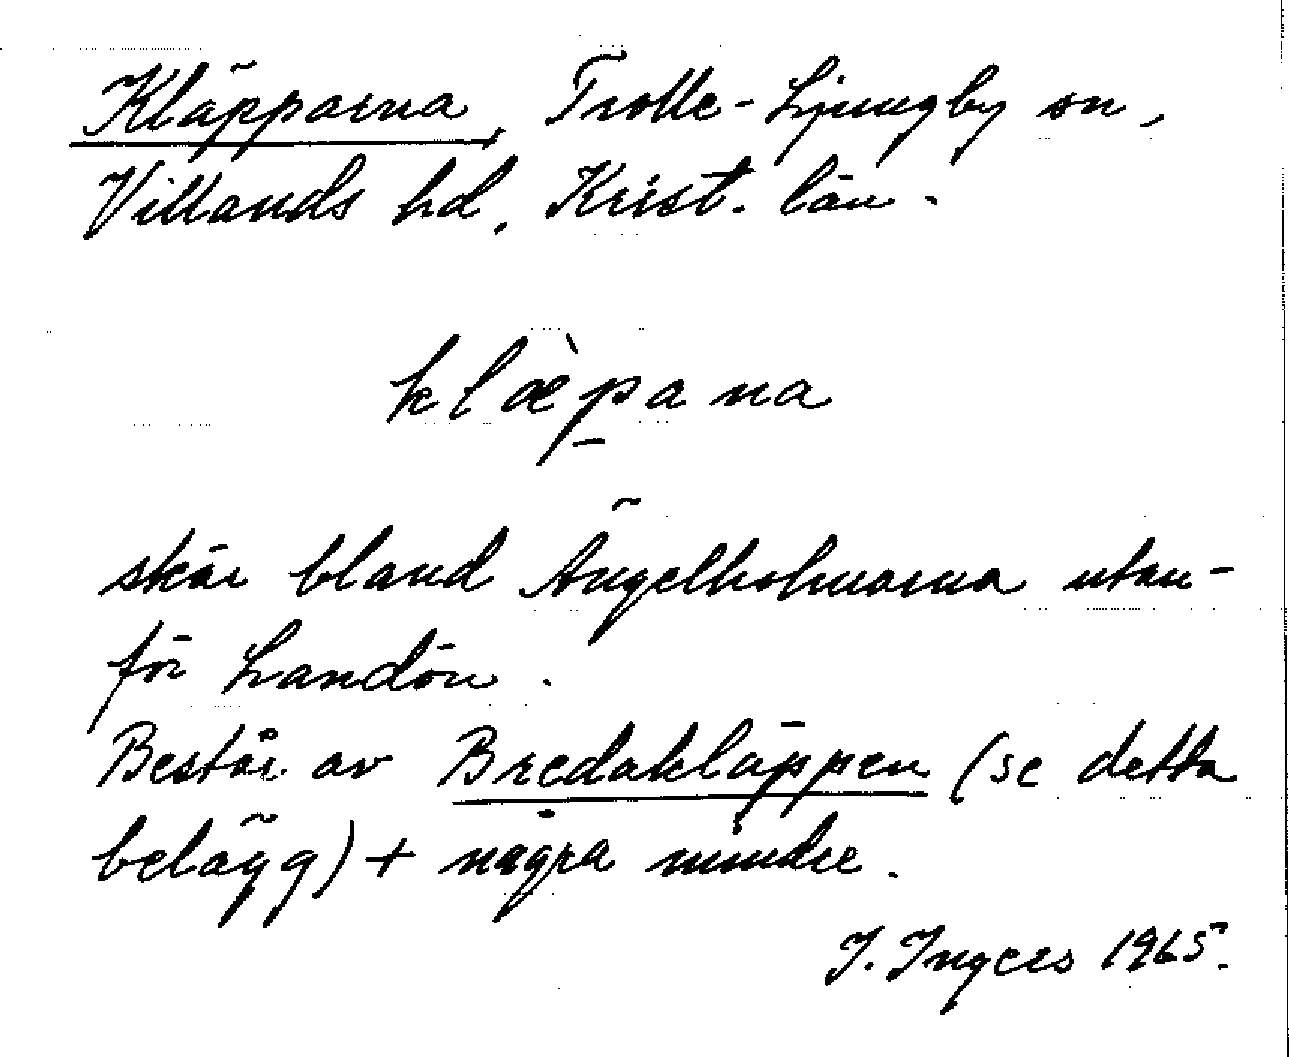 Kläpparna, Trolle-Ljungby sn,
Villands hd, Krist. län.
klæ̀p̠ana
skär bland Ängelholmarna utan-
för Landön.
Består av Bredakläppen (se detta
belägg) + några mindre.
I. Ingers 1965.